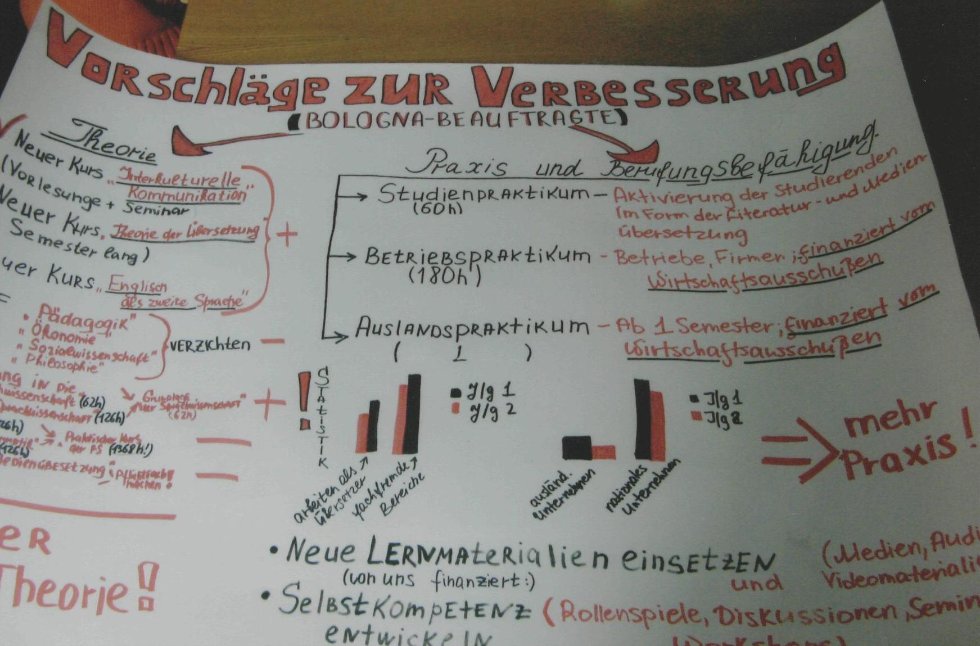 Vorschläge zur Verbesserung
(BOLOGNA-BEAUFTRAGTE)
Theorie
Neuer Kurs „Interkulturelle
Kommunikation"
(Vorlesunge + Seminar
Neuer Kurs „Theorie der Übersetzung"
Semester lang)
uer Kurs „Englisch
als zweite Sprache"
+
„Pädagogik"
„Ökonomie"
„Sozialwissenschaft"
„Philosophie"
VERZICHTEN –
ng in die
(62h)
(62h)
(126h)
+
Praktischer Kurs
der FS (1368h!)
Praxis und Berufungsbefähigung.
Studienpraktikum – Aktivierung der Studierenden
(60h)
im Form der Literatur- und Medien
übersetzung
Betriebspraktikum – Betriebe, Firmen; finanziert vom
(180h)
Wirtschaftsausschüßen
Auslandspraktikum – Ab 1 Semester; finanziert vom
( 1 )
Wirtschaftsausschüßen
! Statistik
J/g 1
J/g 2
arbeiten als
Übersetzer
fachfremde
Bereiche
J/g 1
J/g 2
ausländ.
Unternehmen
nationales
Unternehmen
mehr
Praxis!
er
Theorie!
• Neue Lernmaterialien einsetzen (Medien, Audi
(von uns finanziert :) und Videomateriali
• Selbstkompetenz (Rollenspiele, Diskussionen, Semin
entwickeln